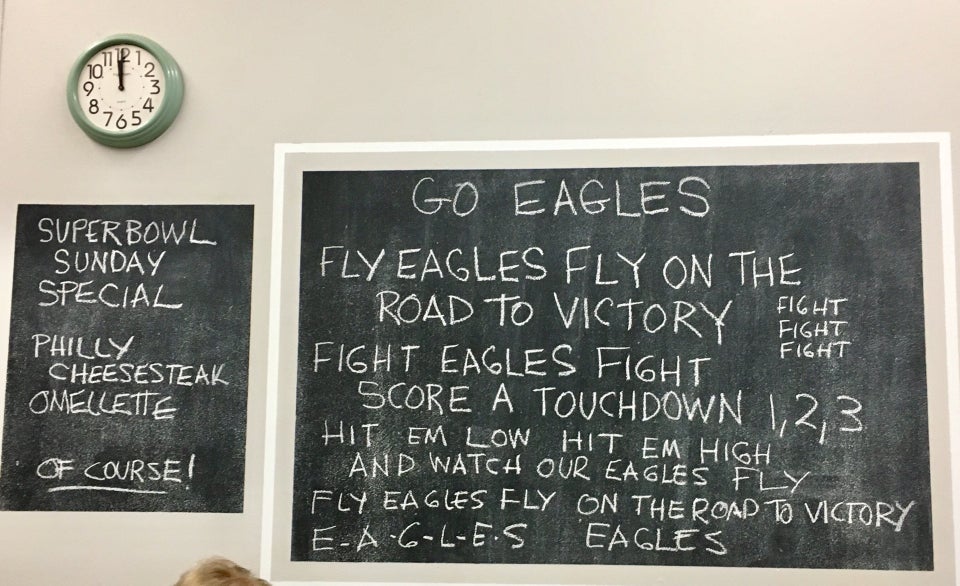 11 12 1
10 2
9 3
8 4
7 6 5
SUPERBOWL
SUNDAY
SPECIAL
PHILLY
CHEESESTEAK
OMELLETTE
OF COURSE!
GO EAGLES
FLY EAGLES FLY ON THE
ROAD TO VICTORY
FIGHT
FIGHT
FIGHT
FIGHT EAGLES FIGHT
SCORE A TOUCHDOWN 1,2,3
HIT EM LOW HIT EM HIGH
AND WATCH OUR EAGLES FLY
FLY EAGLES FLY ON THE ROAD TO VICTORY
E-A-G-L-E-S EAGLES